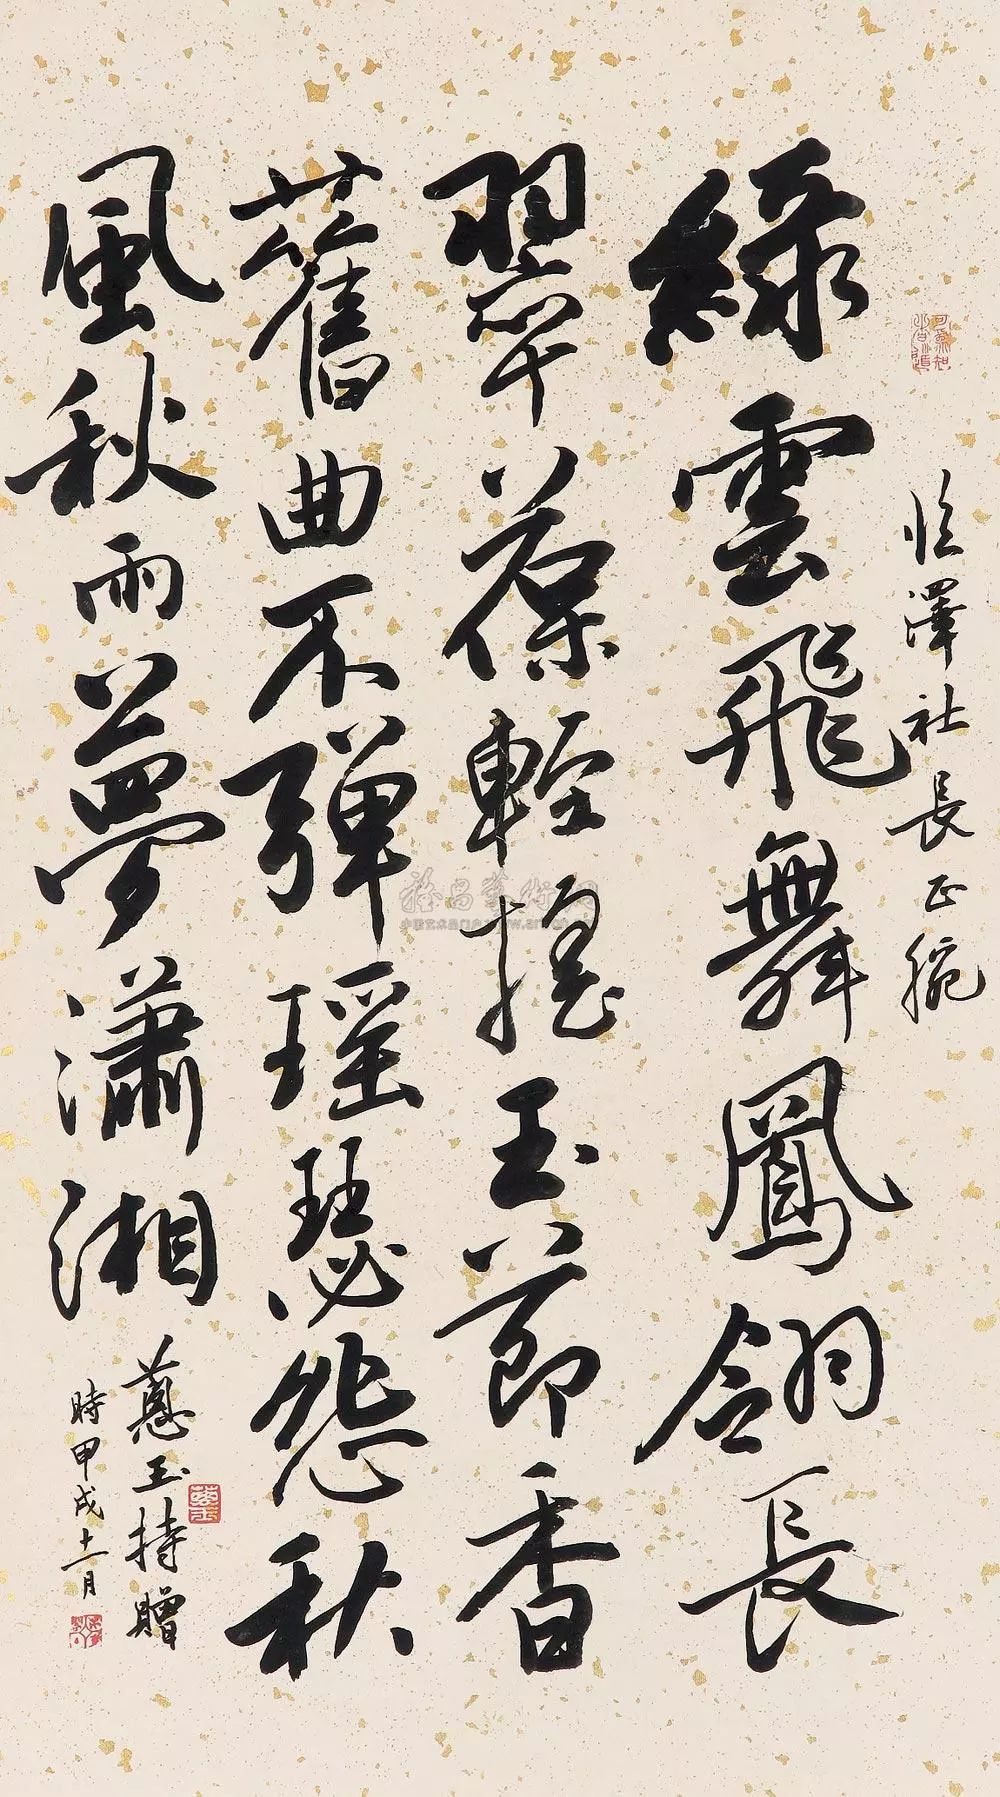 恆澤社長正腕
綠雲飛舞鳳翎長
翠葆輕搖玉節香
舊曲不彈瑤瑟怨秋
風秋雨夢瀟湘
蕙玉持贈
時甲戌十一月